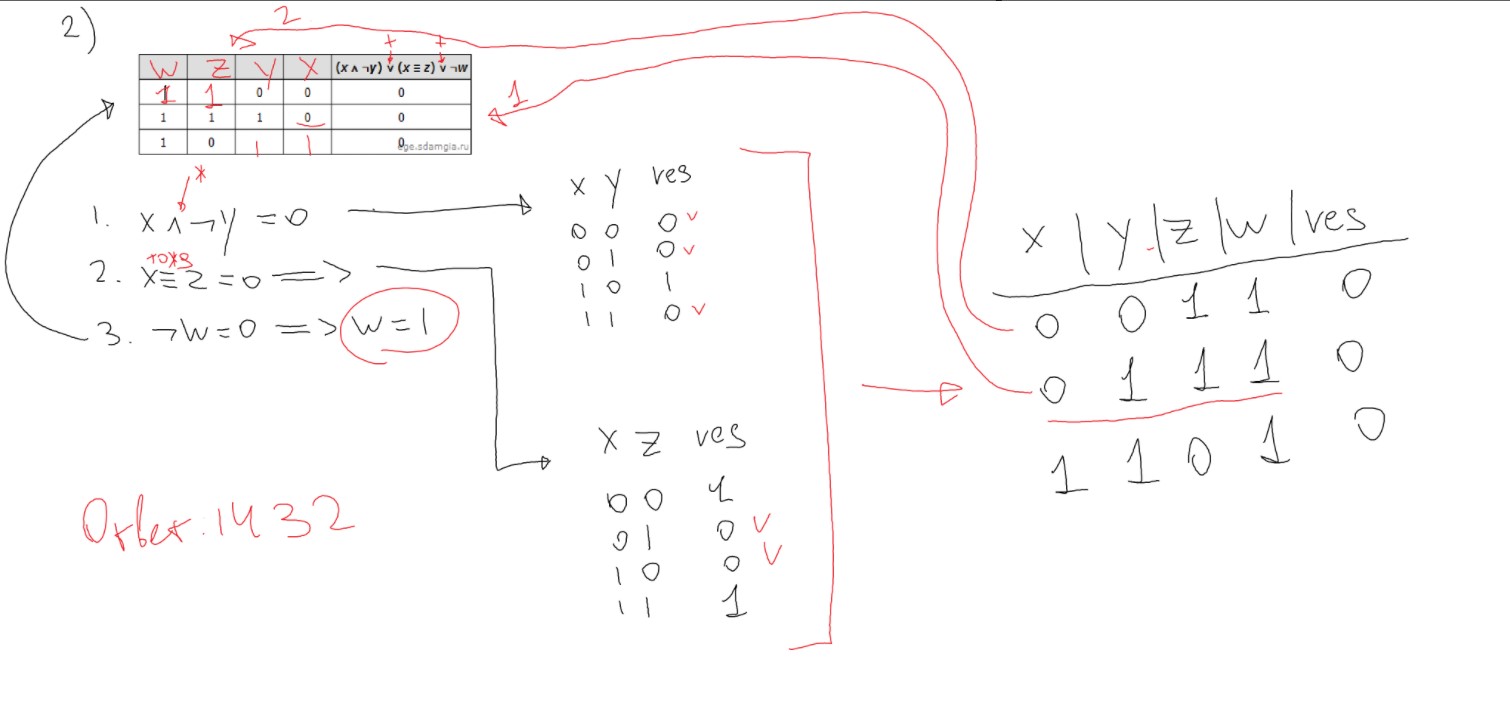 2)
2
+ +
W Z Y X (x ∧ ¬y) ∨ (x ≡ z) ∨ ¬w
1 1 0 0 0
1 1 1 0 0
1 0 1 1 0
ege.sdamgia.ru
1
*
1. x ∧ ¬y = 0
тожд
2. x ≡ z = 0 =>
3. ¬w = 0 => w = 1
x y res
0 0 0 v
0 1 0 v
1 0 1
1 1 0 v
x z res
0 0 1
0 1 0 v
1 0 0 v
1 1 1
x | y | z | w | res
0 0 1 1 0
0 1 1 1 0
1 1 0 1 0
Ответ: 1432